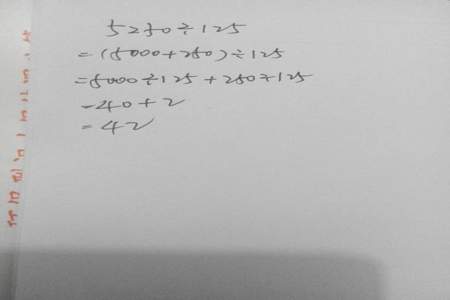 5250÷125
=(5000+250)÷125
=5000÷125+250÷125
=40+2
=42